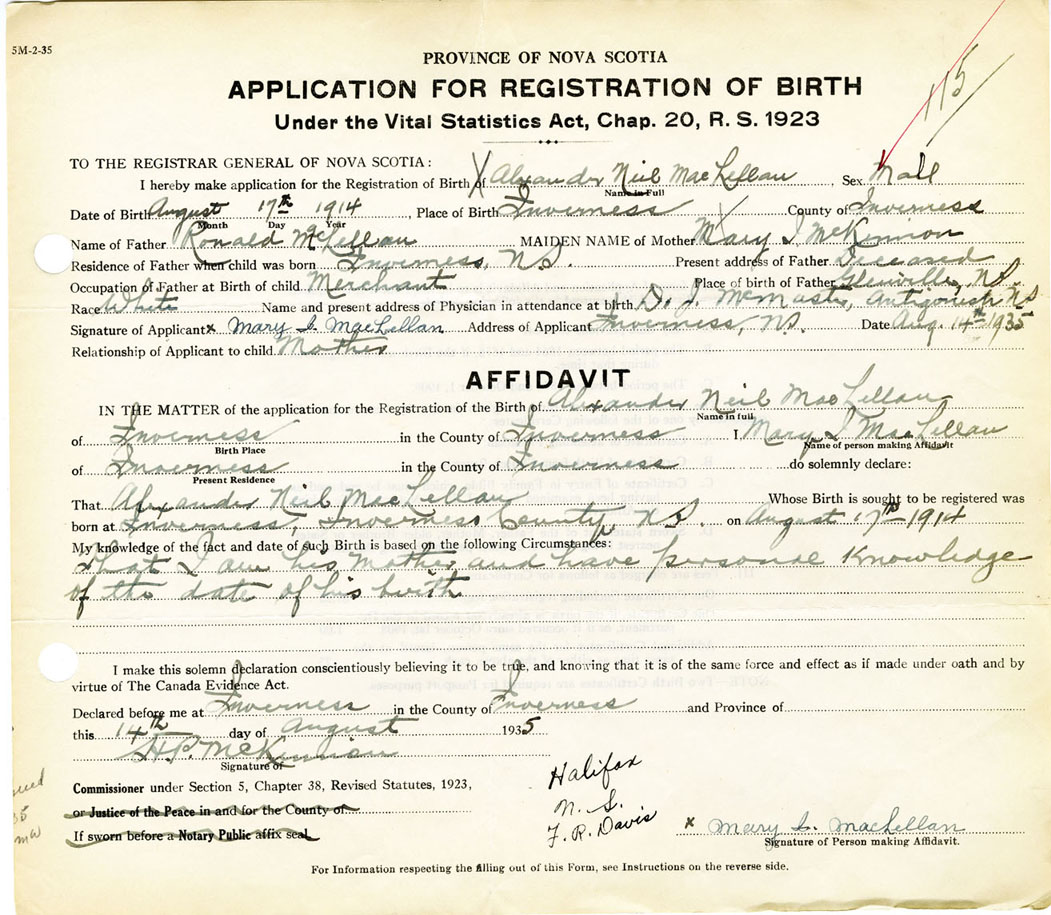 5M-2-35
PROVINCE OF NOVA SCOTIA
APPLICATION FOR REGISTRATION OF BIRTH
Under the Vital Statistics Act, Chap. 20, R. S. 1923
115
TO THE REGISTRAR GENERAL OF NOVA SCOTIA:
I hereby make application for the Registration of Birth of X Alexander Neil MacLellan, Sex Male
Name in Full
Date of Birth August 17th 1914, Place of Birth Inverness County of Inverness
Month Day Year
Name of Father Ronald McLellan MAIDEN NAME of Mother Mary I McKinnon
Residence of Father when child was born Inverness, N.S. Present address of Father Deceased
Occupation of Father at Birth of child Merchant Place of birth of Father Glenville, N.S.
Race White Name and present address of Physician in attendance at birth D. J. McMaster, Antigonish N.S
Signature of Applicant x Mary I. MacLellan Address of Applicant Inverness, N.S. Date Aug. 14th 1935
Relationship of Applicant to child Mother
AFFIDAVIT
IN THE MATTER of the application for the Registration of the Birth of Alexander Neil MacLellan
Name in full
of Inverness in the County of Inverness I, Mary I MacLellan
Birth Place Name of person making Affidavit
of Inverness in the County of Inverness do solemnly declare:
Present Residence
That Alexander Neil MacLellan Whose Birth is sought to be registered was
born at Inverness, Inverness County, N.S. on August 17th 1914
My knowledge of the fact and date of such Birth is based on the following Circumstances:
That I am his mother and have personal knowledge
of the date of his birth
I make this solemn declaration conscientiously believing it to be true, and knowing that it is of the same force and effect as if made under oath and by
virtue of The Canada Evidence Act.
Declared before me at Inverness in the County of Inverness and Province of
this 14th day of August 1935
H.P. McKinnon
Signature of
Commissioner under Section 5, Chapter 38, Revised Statutes, 1923,
or Justice of the Peace in and for the County of
If sworn before a Notary Public affix seal
Halifax
N. S.
F. R. Davis
x Mary I. MacLellan
Signature of Person making Affidavit.
For Information respecting the filling out of this Form, see Instructions on the reverse side.